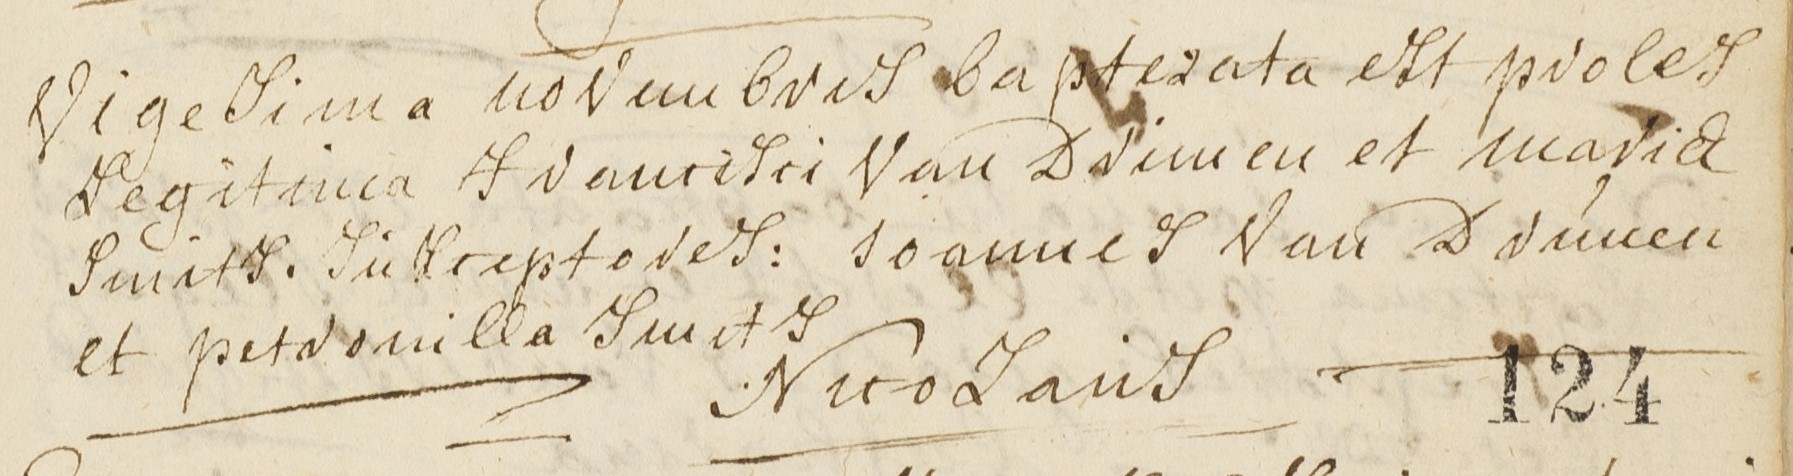 Vigesima novembris baptezata est proles
Legitima Francisci Van Drimen et maria
Smits. Susceptores: Joannes Van Drunen
et petronilla Smits
Nicolaus
124